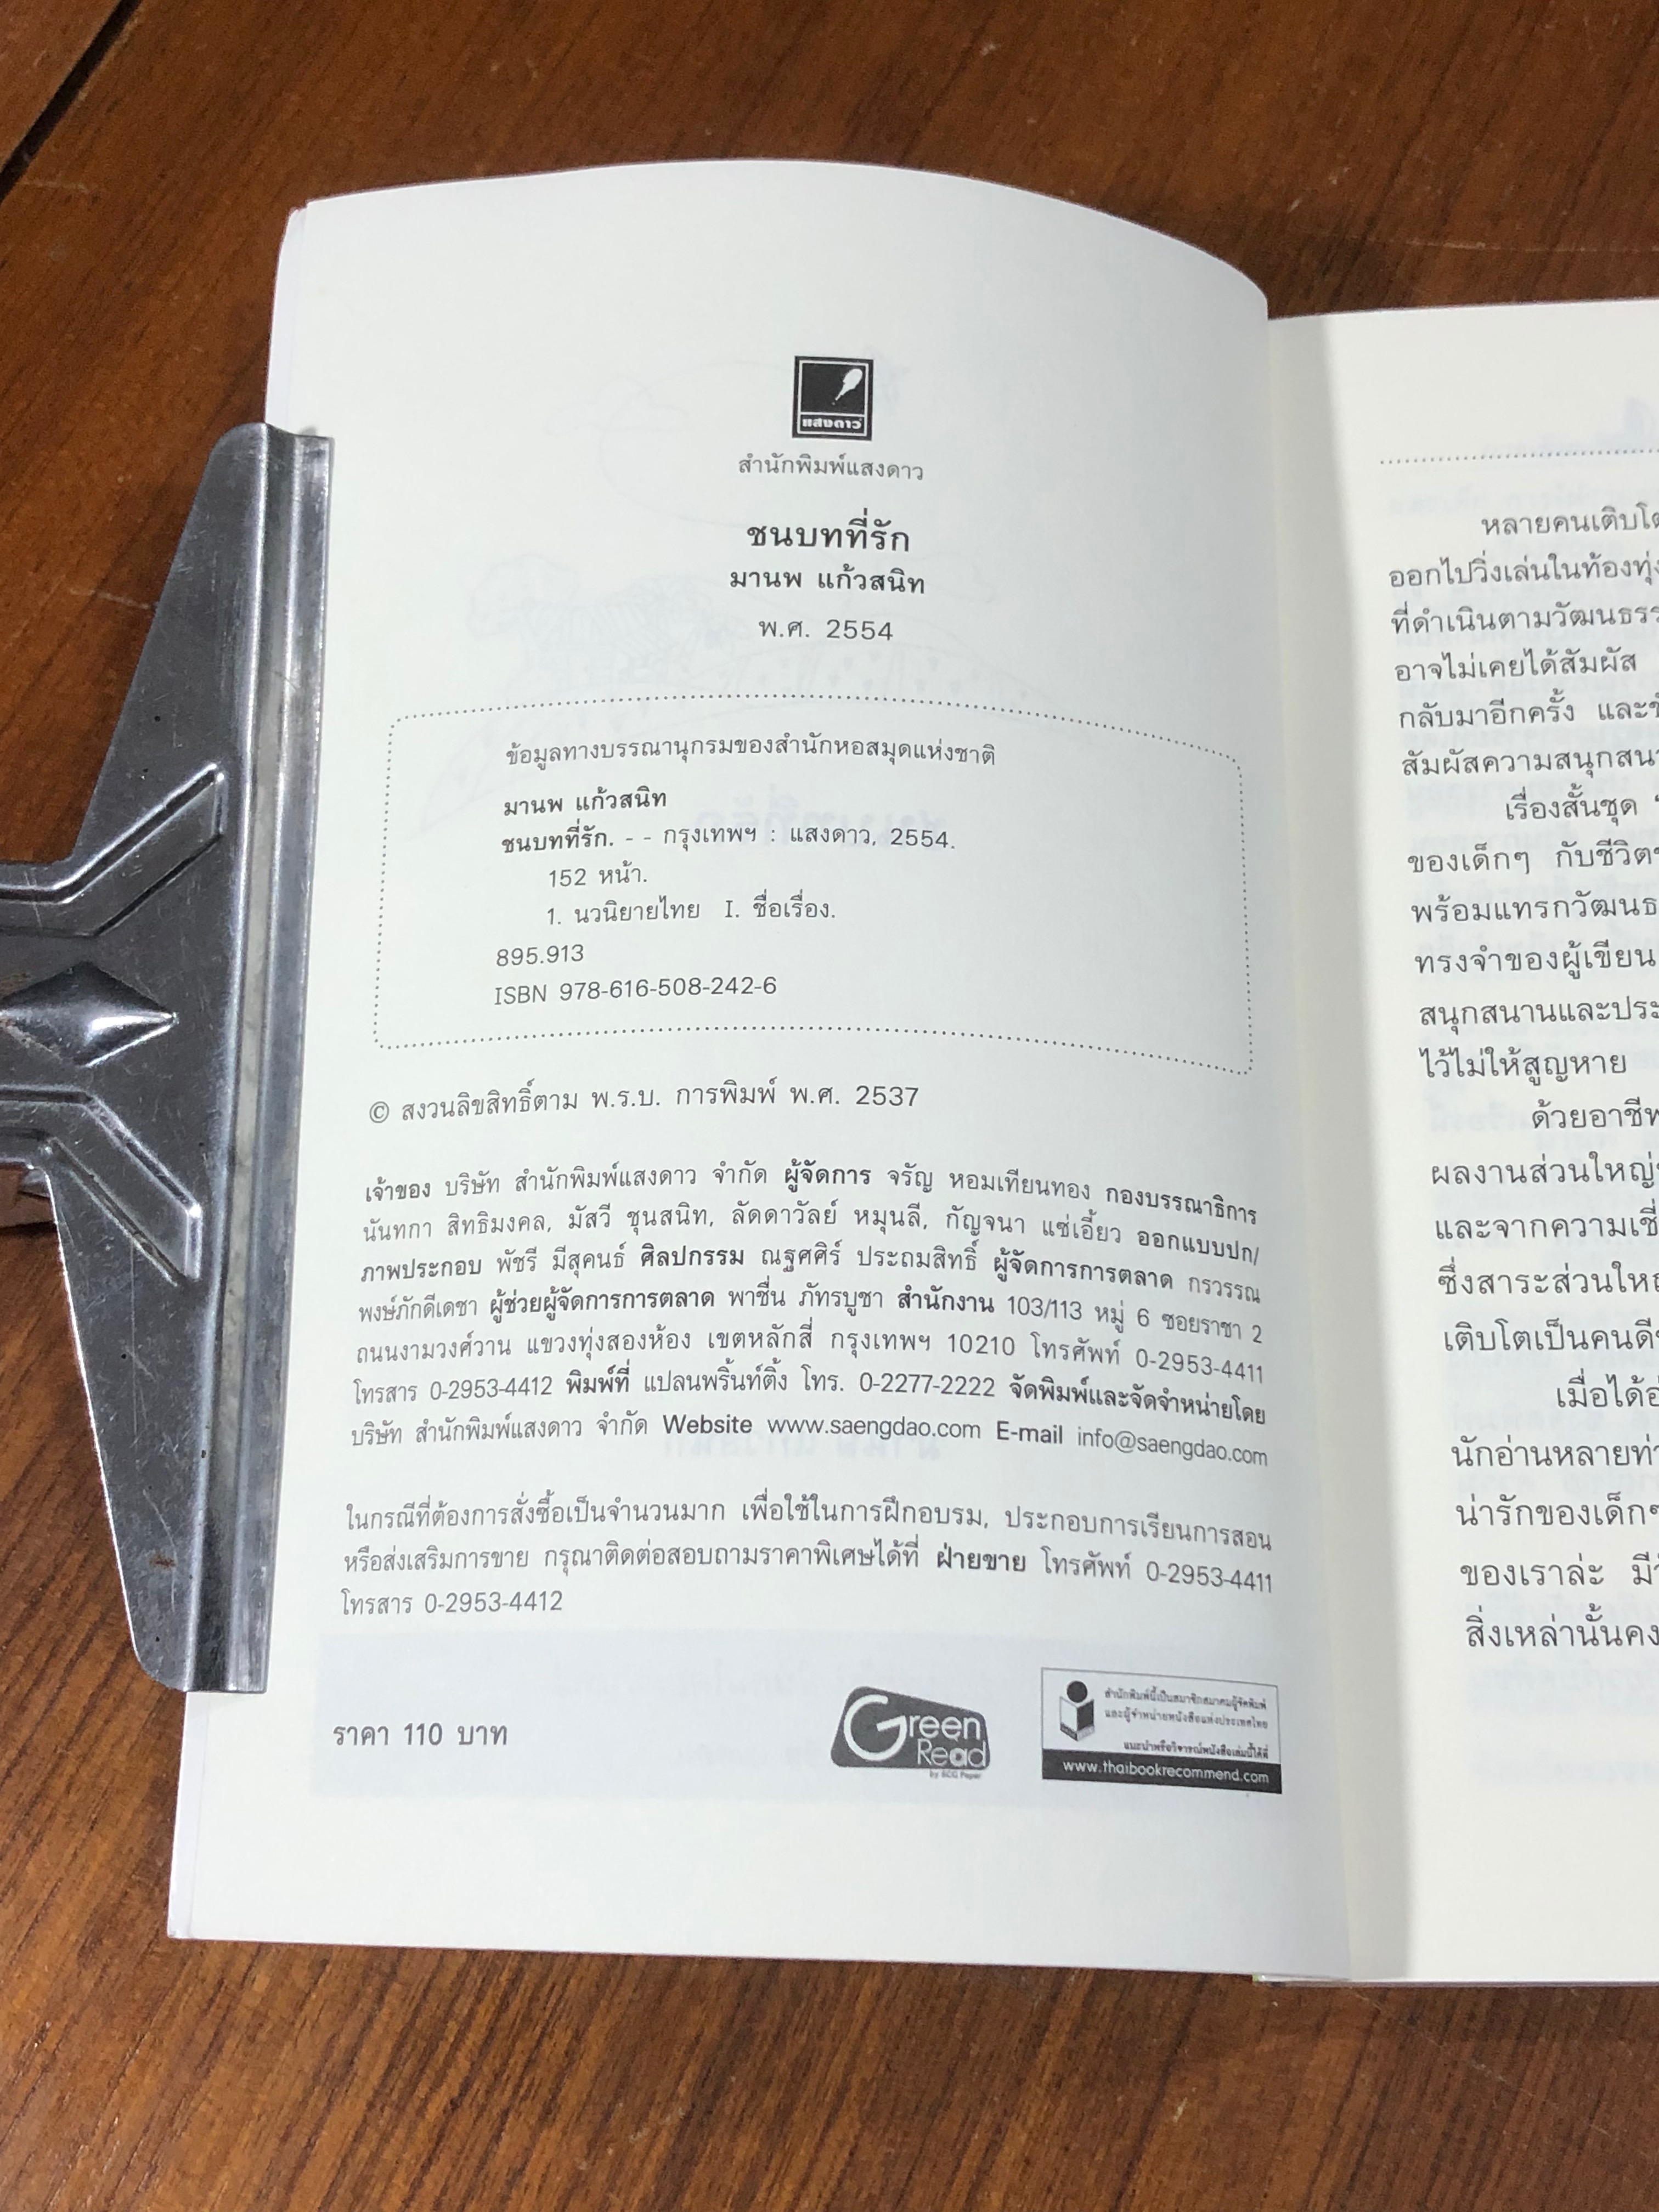 แสงดาว
สำนักพิมพ์แสงดาว
ชนบทที่รัก
มานพ แก้วสนิท
พ.ศ. 2554
ข้อมูลทางบรรณานุกรมของสำนักหอสมุดแห่งชาติ
มานพ แก้วสนิท
ชนบทที่รัก. - - กรุงเทพฯ : แสงดาว, 2554.
152 หน้า.
1. นวนิยายไทย I. ชื่อเรื่อง.
895.913
ISBN 978-616-508-242-6
© สงวนลิขสิทธิ์ตาม พ.ร.บ. การพิมพ์ พ.ศ. 2537
เจ้าของ บริษัท สำนักพิมพ์แสงดาว จำกัด ผู้จัดการ จรัญ หอมเทียนทอง กองบรรณาธิการ
นันทกา สิทธิมงคล, มัสวี ชุนสนิท, ลัดดาวัลย์ หมุนลี, กัญจนา แซ่เอี้ยว ออกแบบปก/
ภาพประกอบ พัชรี มีสุคนธ์ ศิลปกรรม ณฐศศิร์ ประถมสิทธิ์ ผู้จัดการการตลาด กรวรรณ
พงษ์ภักดีเดชา ผู้ช่วยผู้จัดการการตลาด พาชื่น ภัทรบูชา สำนักงาน 103/113 หมู่ 6 ซอยราชา 2
ถนนงามวงศ์วาน แขวงทุ่งสองห้อง เขตหลักสี่ กรุงเทพฯ 10210 โทรศัพท์ 0-2953-4411
โทรสาร 0-2953-4412 พิมพ์ที่ แปลนพริ้นท์ติ้ง โทร. 0-2277-2222 จัดพิมพ์และจัดจำหน่ายโดย
บริษัท สำนักพิมพ์แสงดาว จำกัด Website www.saengdao.com E-mail info@saengdao.com
ในกรณีที่ต้องการสั่งซื้อเป็นจำนวนมาก เพื่อใช้ในการฝึกอบรม, ประกอบการเรียนการสอน
หรือส่งเสริมการขาย กรุณาติดต่อสอบถามราคาพิเศษได้ที่ ฝ่ายขาย โทรศัพท์ 0-2953-4411
โทรสาร 0-2953-4412
ราคา 110 บาท
Green
Read
by SCG Paper
สำนักพิมพ์นี้เป็นสมาชิกสมาคมผู้จัดพิมพ์
และผู้จำหน่ายหนังสือแห่งประเทศไทย
แนะนำหรือวิจารณ์หนังสือเล่มนี้ได้ที่
www.thaibookrecommend.com
หลายคนเติบโต
ออกไปวิ่งเล่นในท้องทุ่ง
ที่ดำเนินตามวัฒนธรร
อาจไม่เคยได้สัมผัส
กลับมาอีกครั้ง และ
สัมผัสความสนุกสนา
เรื่องสั้นชุด
ของเด็กๆ กับชีวิต
พร้อมแทรกวัฒนธ
ทรงจำของผู้เขียน
สนุกสนานและประ
ไว้ไม่ให้สูญหาย
ด้วยอาชีพ
ผลงานส่วนใหญ่
และจากความเชี่
ซึ่งสาระส่วนใหญ่
เติบโตเป็นคนดี
เมื่อได้อ่
นักอ่านหลายท่า
น่ารักของเด็กๆ
ของเราล่ะ มี
สิ่งเหล่านั้นคง